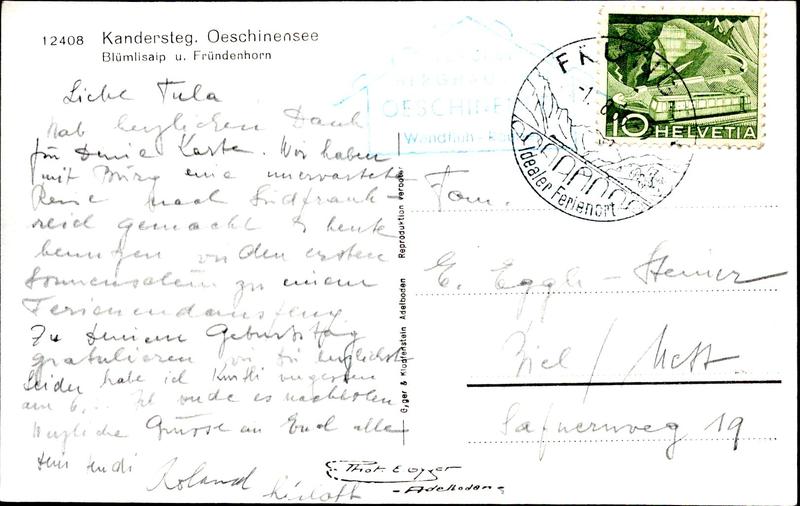 12408 Kandersteg. Oeschinensee
Blümlisalp u. Fründenhorn
BERGHAUS
OESCHINEN
Wandfluh
FRUTIG
Idealer Ferienort
10 HELVETIA
Liebe Tula
Hab herzlichen Dank
für Deine Karte. Wir haben
mit Bürg eine unerwartete
Reise nach Südfrank-
reich gemacht & heute
benützen wir den ersten
Sonnenschein zu einem
Ferienend
Zu deinem Geburtstag
gratulieren wir dir herzlichst
Leider habe ich vergessen
am 6. es nachholen
Herzliche Grüsse an Euch alle
Roland
Fam.
E. Eggli-Steiner
Biel / Mett
Safnernweg 19
Gyger & Klopfenstein Adelboden Reproduktion verboten
Phot. E. Gyger
- Adelboden -